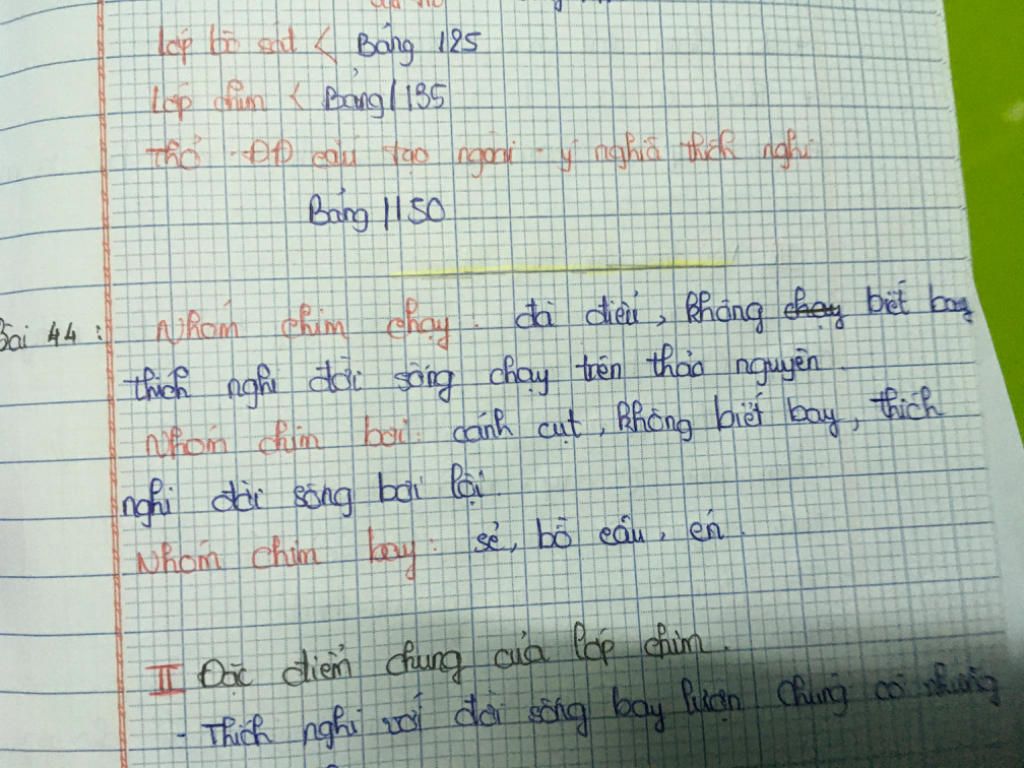 Lớp bò sát < Bảng 125
Lớp chim < Bảng / 135
Thỏ - ĐĐ cấu tạo ngoài - ý nghĩa thích nghi
Bảng / 150
Bài 44 : Nhóm chim chạy : đà điểu, không chạy biết bay
thích nghi đời sống chạy trên thảo nguyên.
Nhóm chim bơi : cánh cụt, không biết bay, thích
nghi đời sống bơi lội.
Nhóm chim bay : sẻ, bồ câu, én.
II Đặc điểm chung của lớp chim.
- Thích nghi với đời sống bay lượn chúng có những